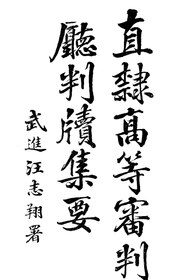 直隸高等審判
廳判牘集要
武進汪志翔署